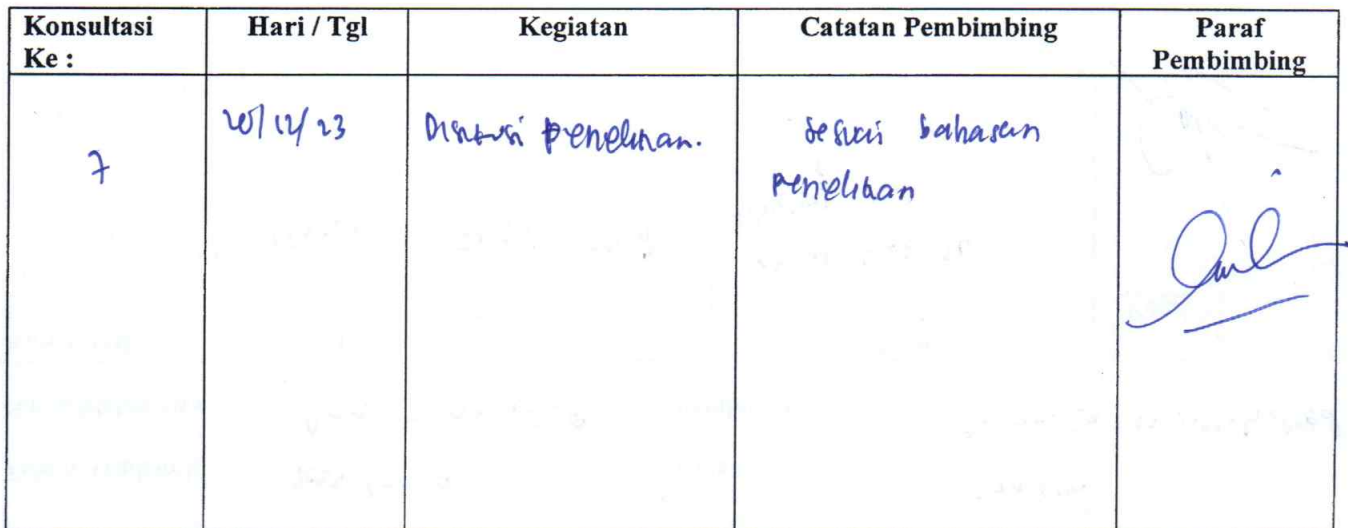 Konsultasi Ke :
Hari / Tgl
Kegiatan
Catatan Pembimbing
Paraf Pembimbing
7
20/12/23
Diskusi penelitian.
sesuai bahasan
penelitian